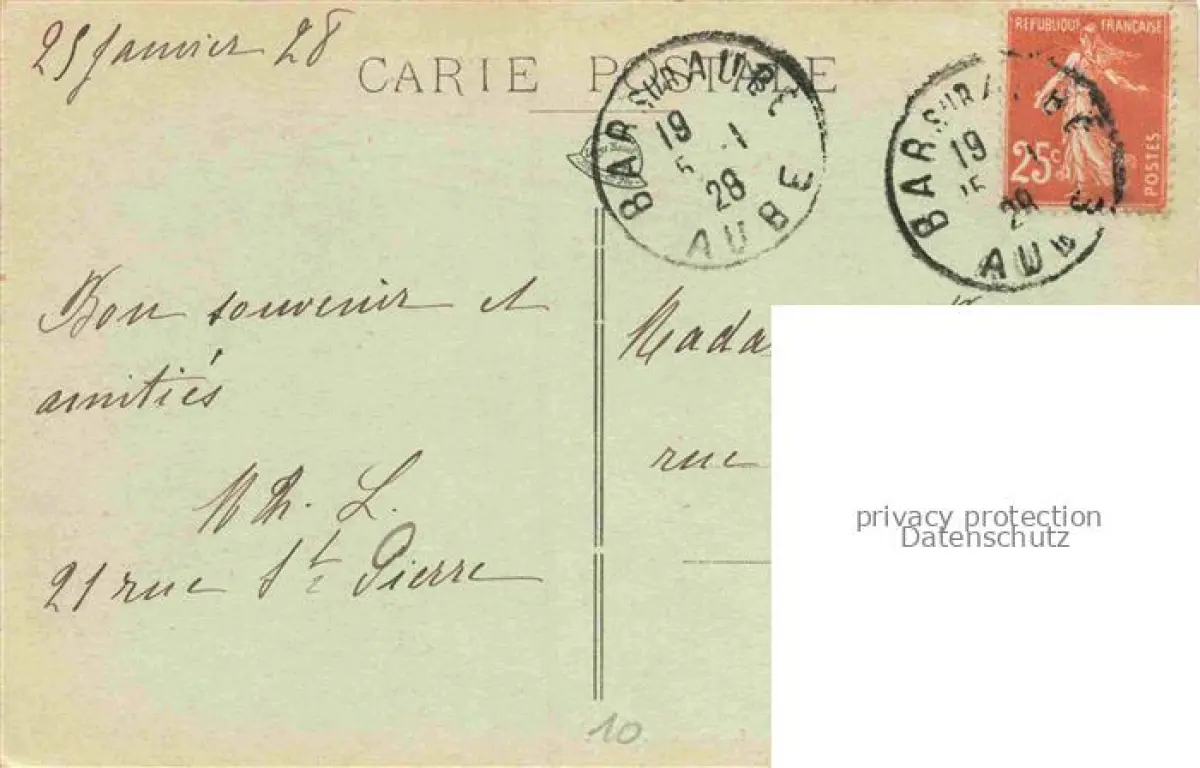 25 Janvier 28
CARTE POSTALE
BAR SUR AUBE
19
28
AUBE
BAR SUR AUBE
19
28
AUBE
REPUBLIQUE FRANÇAISE
25c
POSTES
Bon souvenir et
amitiés
L.
21 rue St Pierre
Mada
rue
privacy protection
Datenschutz
10